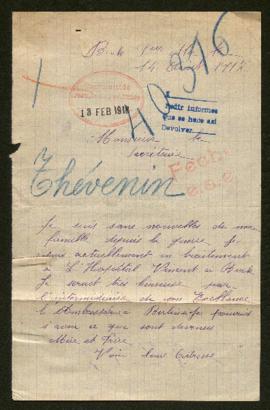 40316
1
13 FEB 1918
Pedir informes
que se hace así
Devolver.
Monsieur le
Secrétaire
Fech
Thévenin
Je suis sans nouvelles de ma
famille depuis la guerre. Je
suis actuellement en traitement
à l'Hopital Vincent à Berk
Je serait très heureux par
l'intermédiaire de son Excellence
l'Ambassadeur à Berlin
savoir ce que sont devenus
Mère et Père.
Voici leur Adresse